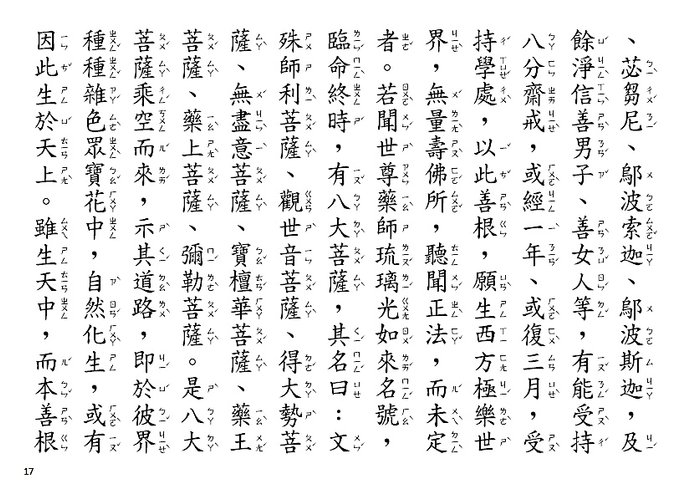 、苾芻尼、鄔波索迦、鄔波斯迦，及
餘淨信善男子、善女人等，有能受持
八分齋戒，或經一年、或復三月，受
持學處，以此善根，願生西方極樂世
界，無量壽佛所，聽聞正法，而未定
者。若聞世尊藥師琉璃光如來名號，
臨命終時，有八大菩薩，其名曰：文
殊師利菩薩、觀世音菩薩、得大勢菩
薩、無盡意菩薩、寶檀華菩薩、藥王
菩薩、藥上菩薩、彌勒菩薩。是八大
菩薩乘空而來，示其道路，即於彼界
種種雜色眾寶花中，自然化生，或有
因此生於天上。雖生天中，而本善根
17